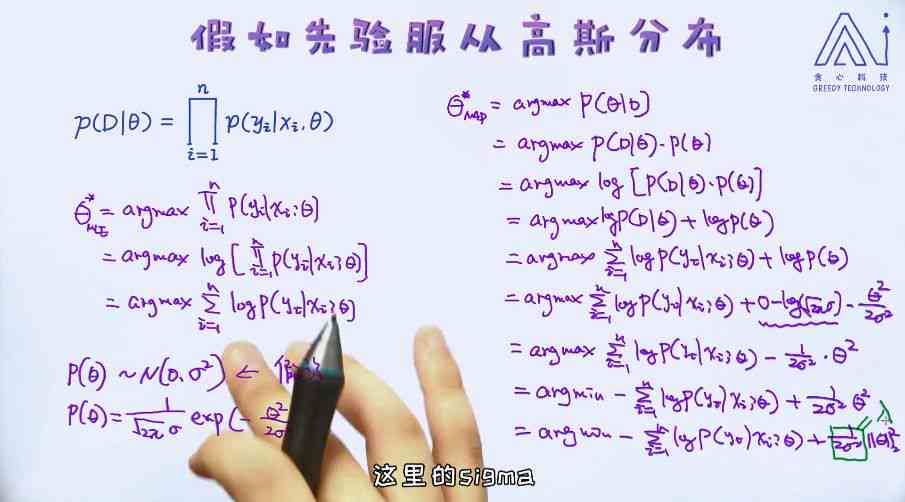 假如先验服从高斯分布
贪心科技
GREEDY TECHNOLOGY
n
p(D|θ) = ∏ p(yᵢ|xᵢ,θ)
i=1
θ*MLE = argmax ∏ⁿᵢ₌₁ P(yᵢ|xᵢ;θ)
= argmax log[∏ⁿᵢ₌₁ P(yᵢ|xᵢ;θ)]
= argmax ∑ⁿᵢ₌₁ log P(yᵢ|xᵢ;θ)
P(θ) ~ N(0, σ²) ←
P(θ) = 1/(√2π σ) exp(- θ²/2σ
θ*MAP = argmax P(θ|D)
= argmax P(D|θ)·P(θ)
= argmax log [P(D|θ)·P(θ)]
= argmax log P(D|θ) + log P(θ)
= argmax ∑ⁿᵢ₌₁ log P(yᵢ|xᵢ;θ) + log P(θ)
= argmax ∑ⁿᵢ₌₁ log P(yᵢ|xᵢ;θ) + 0 - log(√2π σ) - θ²/2σ²
= argmax ∑ⁿᵢ₌₁ log P(yᵢ|xᵢ;θ) - 1/2σ² · θ²
= argmin - ∑ⁿᵢ₌₁ log P(yᵢ|xᵢ;θ) + 1/2σ² θ²
= argmin - ∑ⁿᵢ₌₁ log P(yᵢ|xᵢ;θ) + 1/2σ² ||θ||²₂
λ
这里的sigma